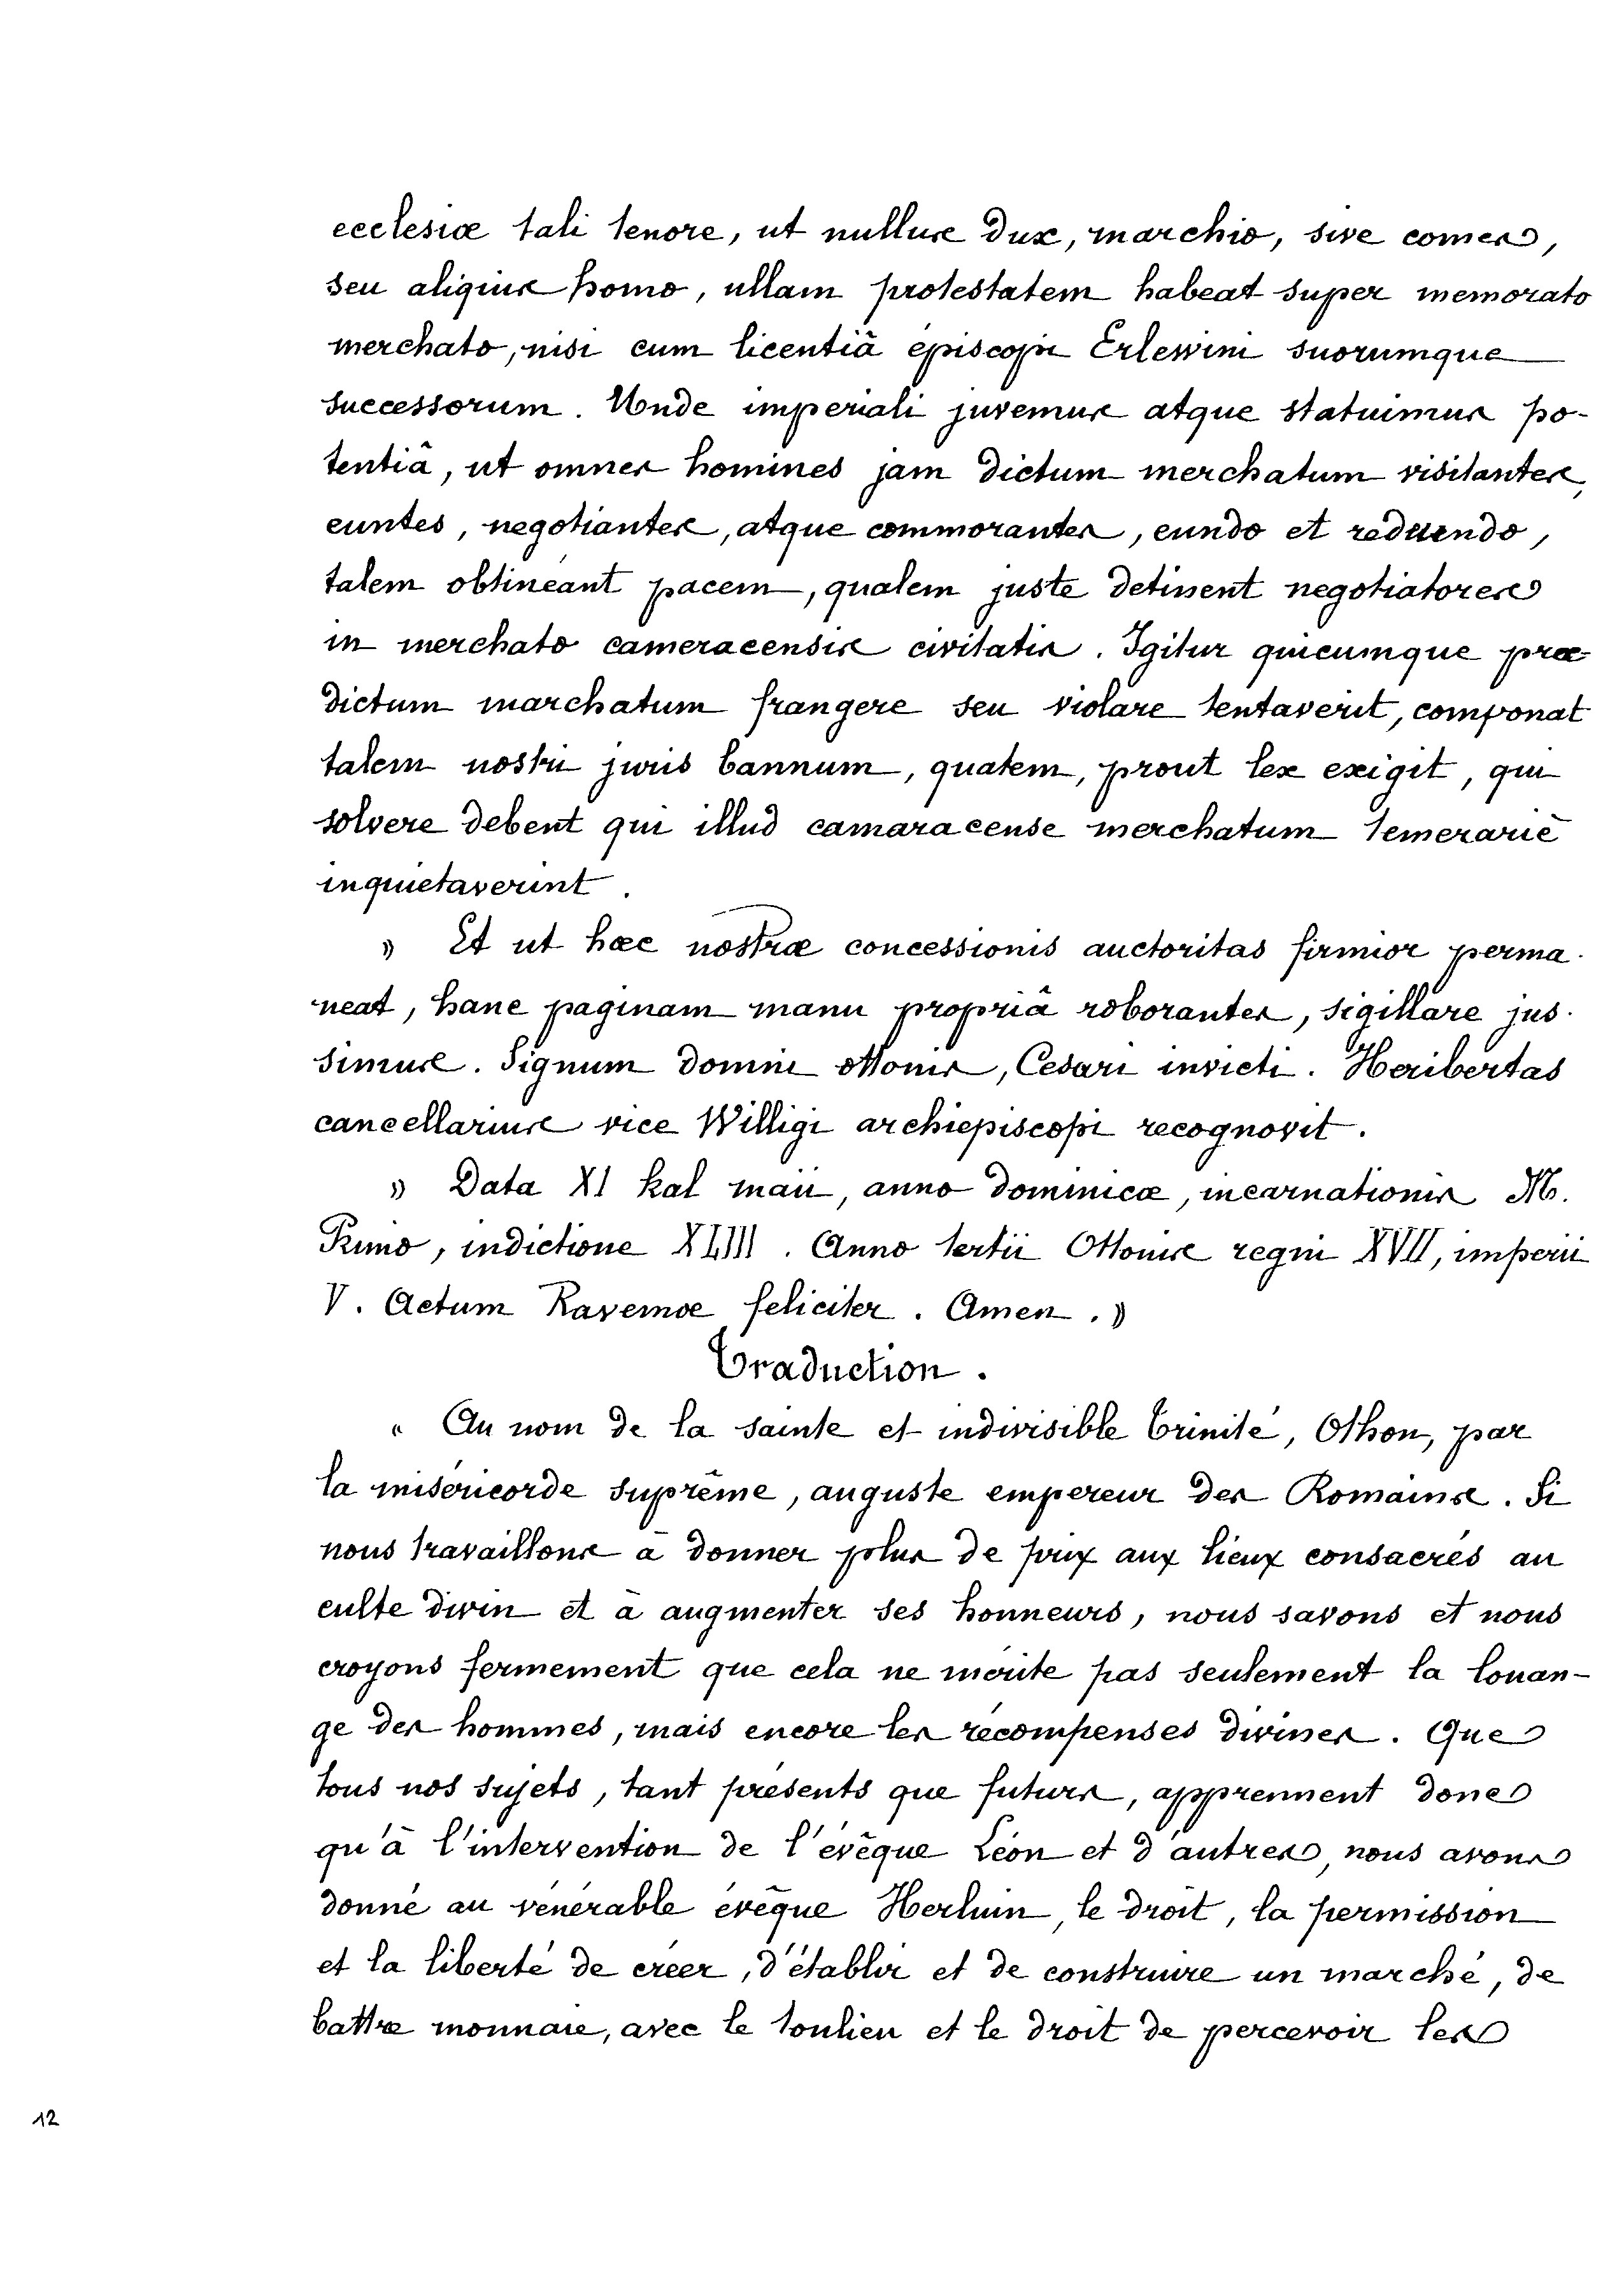 ecclesiæ tali tenore, ut nullus dux, marchio, sive comes,
seu aliquis homo, ullam protestatem habeat super memorato
merchato, nisi cum licentiâ épiscopi Erlewini suorumque
successorum. Unde imperiali juvemus atque statuimus po-
tentiâ, ut omnes homines jam dictum merchatum visitantes,
euntes, negotiantes, atque commorantes, eundo et redeundo,
talem obtineant pacem, qualem juste detinent negotiatores
in merchato cameracensis civitatis. Igitur quicumque præ-
dictum marchatum frangere seu violare tentaverit, componat
talem nostri juris bannum, quatem, prout lex exigit, qui
solvere debent qui illud camaracense merchatum temerariè
inquietaverint.
» Et ut hæc nostræ concessionis auctoritas firmior perma-
neat, hanc paginam manu propriâ roborantes, sigillare jus-
simus. Signum domini ottonis, Cesari invicti. Heribertas
cancellarius vice Willigi archiepiscopi recognovit.
» Data XI kal maii, anno dominicæ, incarnationis M.
Primo, indictione XLIII. Anno tertii Ottonis regni XVII, imperii
V. Actum Ravennæ feliciter. Amen. »
Traduction.
" Au nom de la sainte et indivisible trinité, Othon, par
la miséricorde suprême, auguste empereur des Romains. Si
nous travaillons à donner plus de prix aux lieux consacrés au
culte divin et à augmenter ses honneurs, nous savons et nous
croyons fermement que cela ne mérite pas seulement la louan-
ge des hommes, mais encore les récompenses divines. Que
tous nos sujets, tant présents que futurs, apprennent donc
qu'à l'intervention de l'évêque Léon et d'autres, nous avons
donné au vénérable évêque Herluin, le droit, la permission
et la liberté de créer, d'établir et de construire un marché, de
battre monnaie, avec le tonlieu et le droit de percevoir les
12